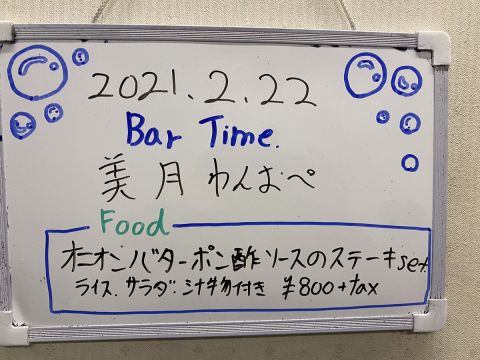 2021.2.22
Bar Time.
美月わんおぺ
Food
オニオンバターポン酢ソースのステーキset
ライス、サラダ、汁物付き ¥800+tax